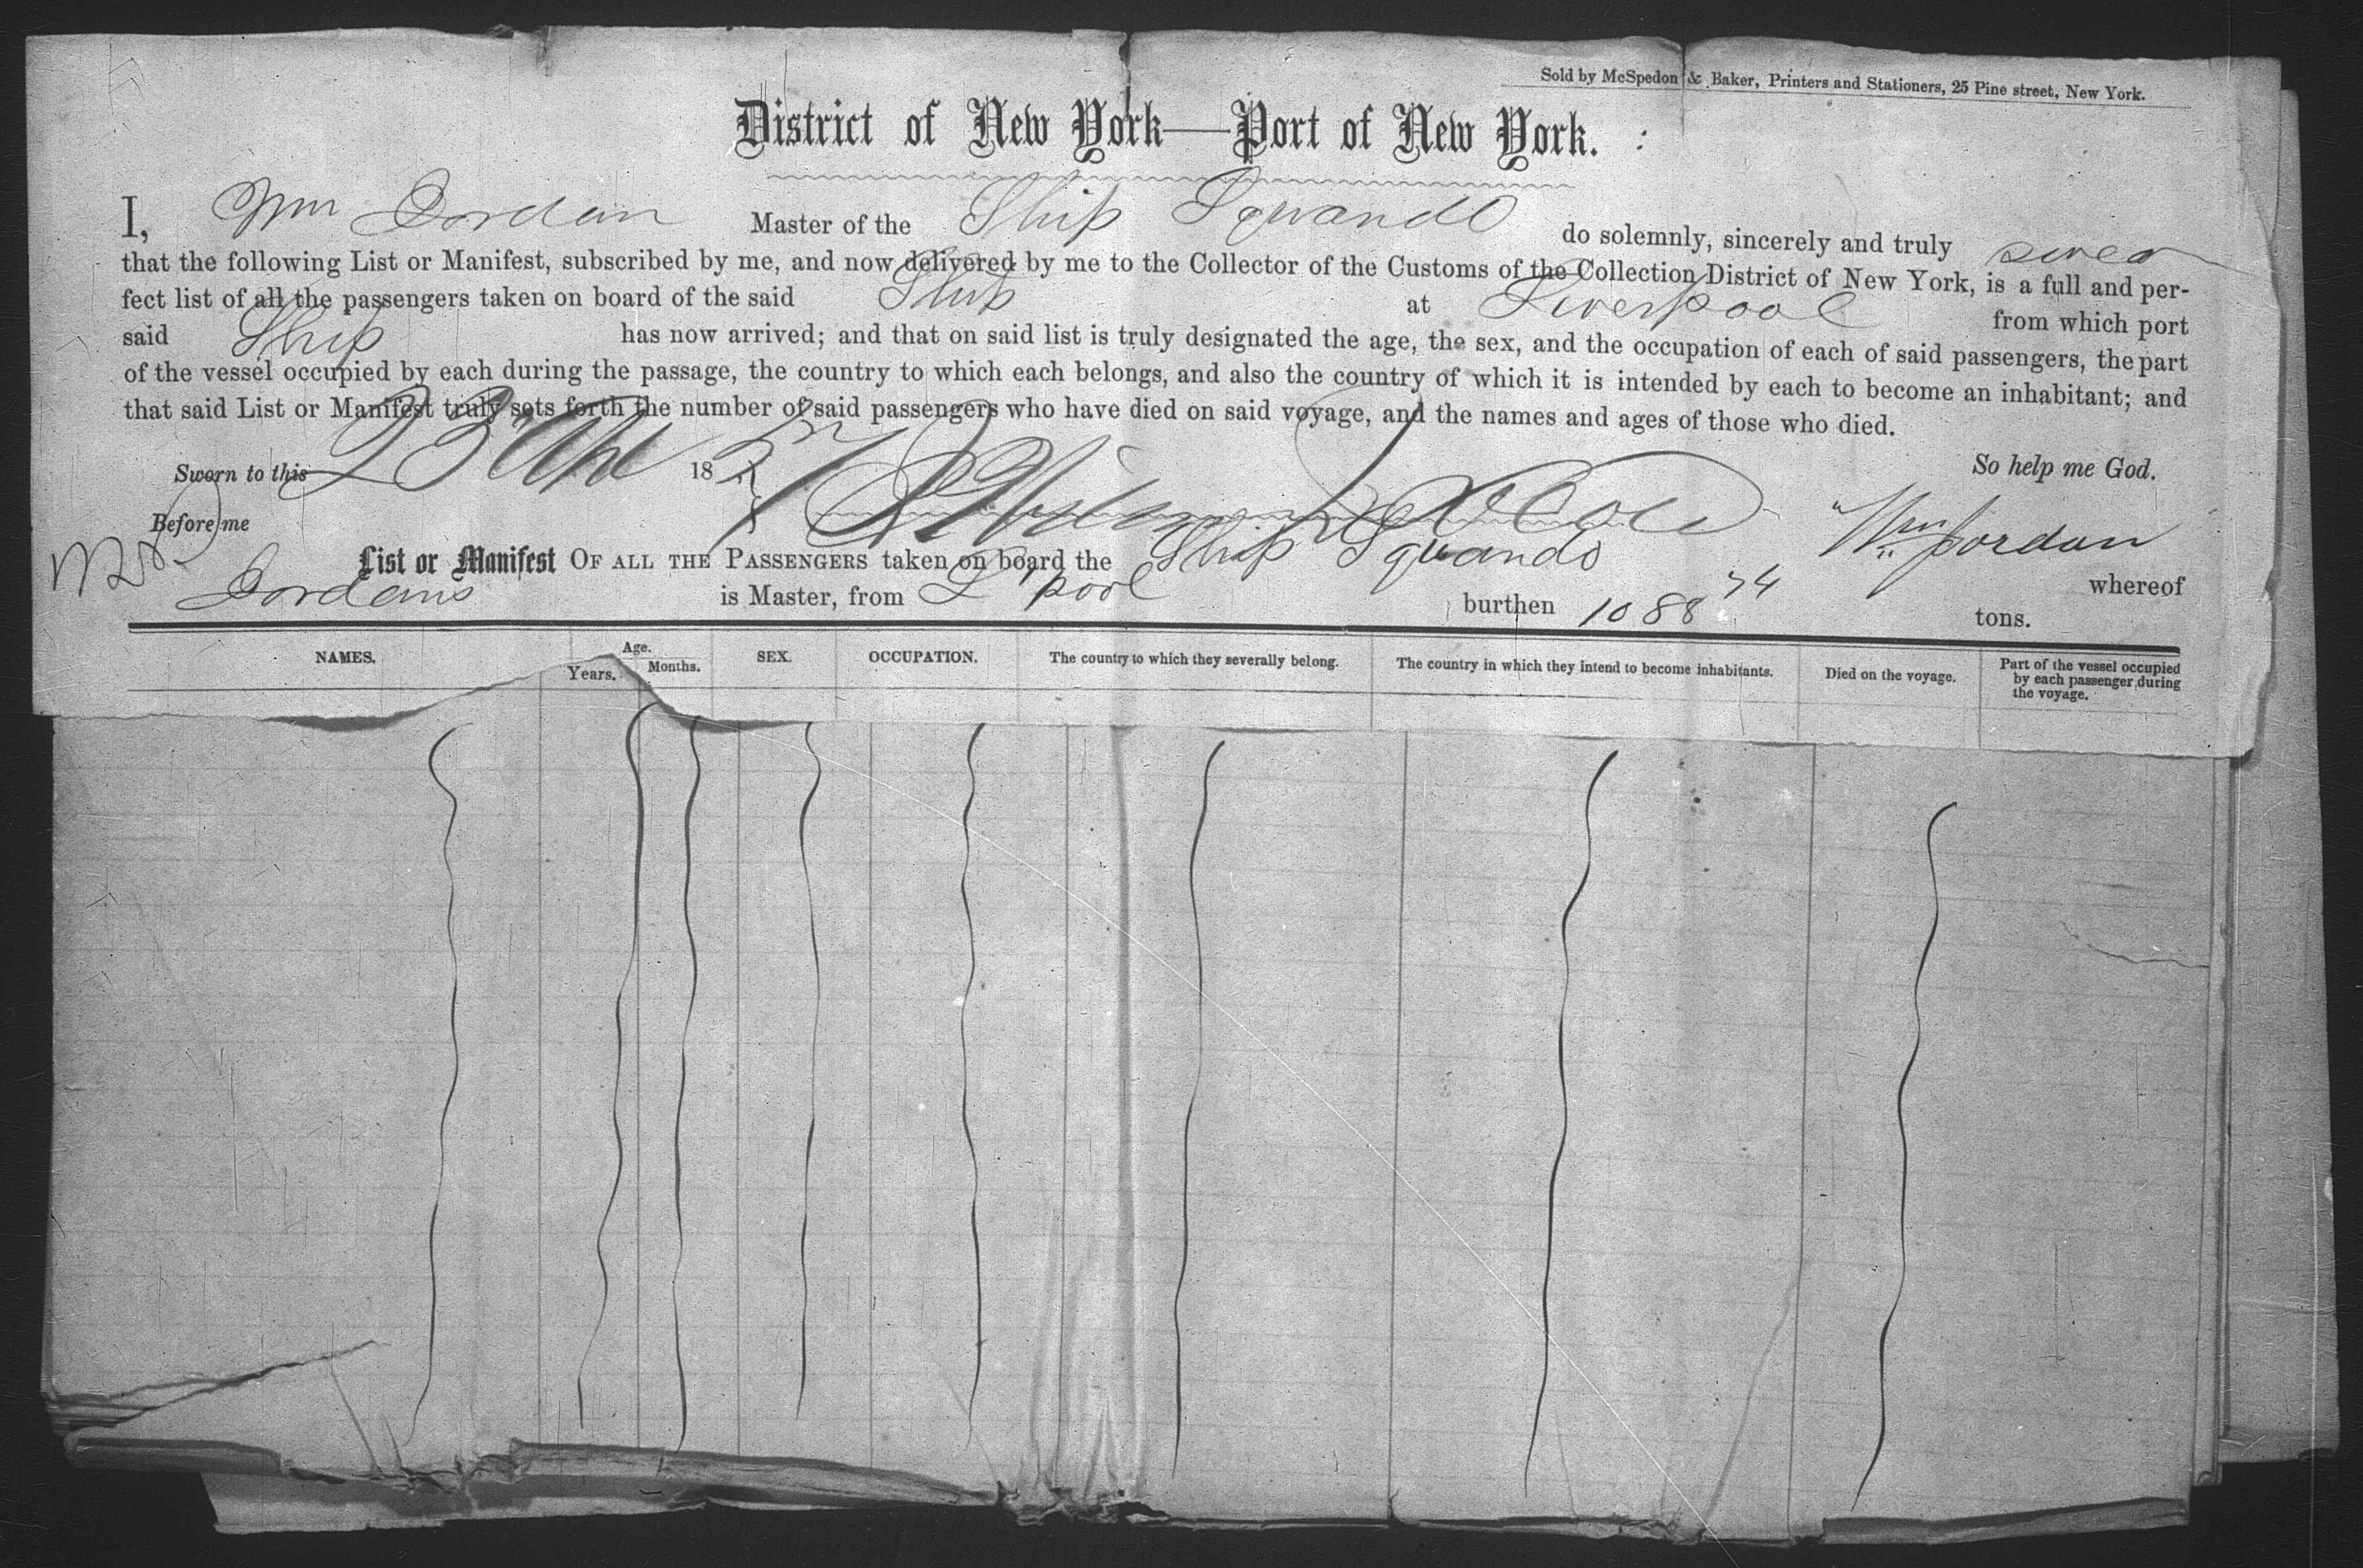 Sold by McSpedon & Baker, Printers and Stationers, 25 Pine street, New York.
District of New York—Port of New York.
I, Wm Jordan Master of the Ship Squando do solemnly, sincerely and truly swear
that the following List or Manifest, subscribed by me, and now delivered by me to the Collector of the Customs of the Collection District of New York, is a full and per-
fect list of all the passengers taken on board of the said Ship at Liverpool from which port
said Ship has now arrived; and that on said list is truly designated the age, the sex, and the occupation of each of said passengers, the part
of the vessel occupied by each during the passage, the country to which each belongs, and also the country of which it is intended by each to become an inhabitant; and
that said List or Manifest truly sets forth the number of said passengers who have died on said voyage, and the names and ages of those who died.
Sworn to this 18 So help me God.
Before me Wm Jordan
List or Manifest OF ALL THE PASSENGERS taken on board the Ship Squando whereof
Jordans is Master, from L'pool burthen 1088 74 tons.
NAMES. Age. Years. Months. SEX. OCCUPATION. The country to which they severally belong. The country in which they intend to become inhabitants. Died on the voyage. Part of the vessel occupied
by each passenger during
the voyage.